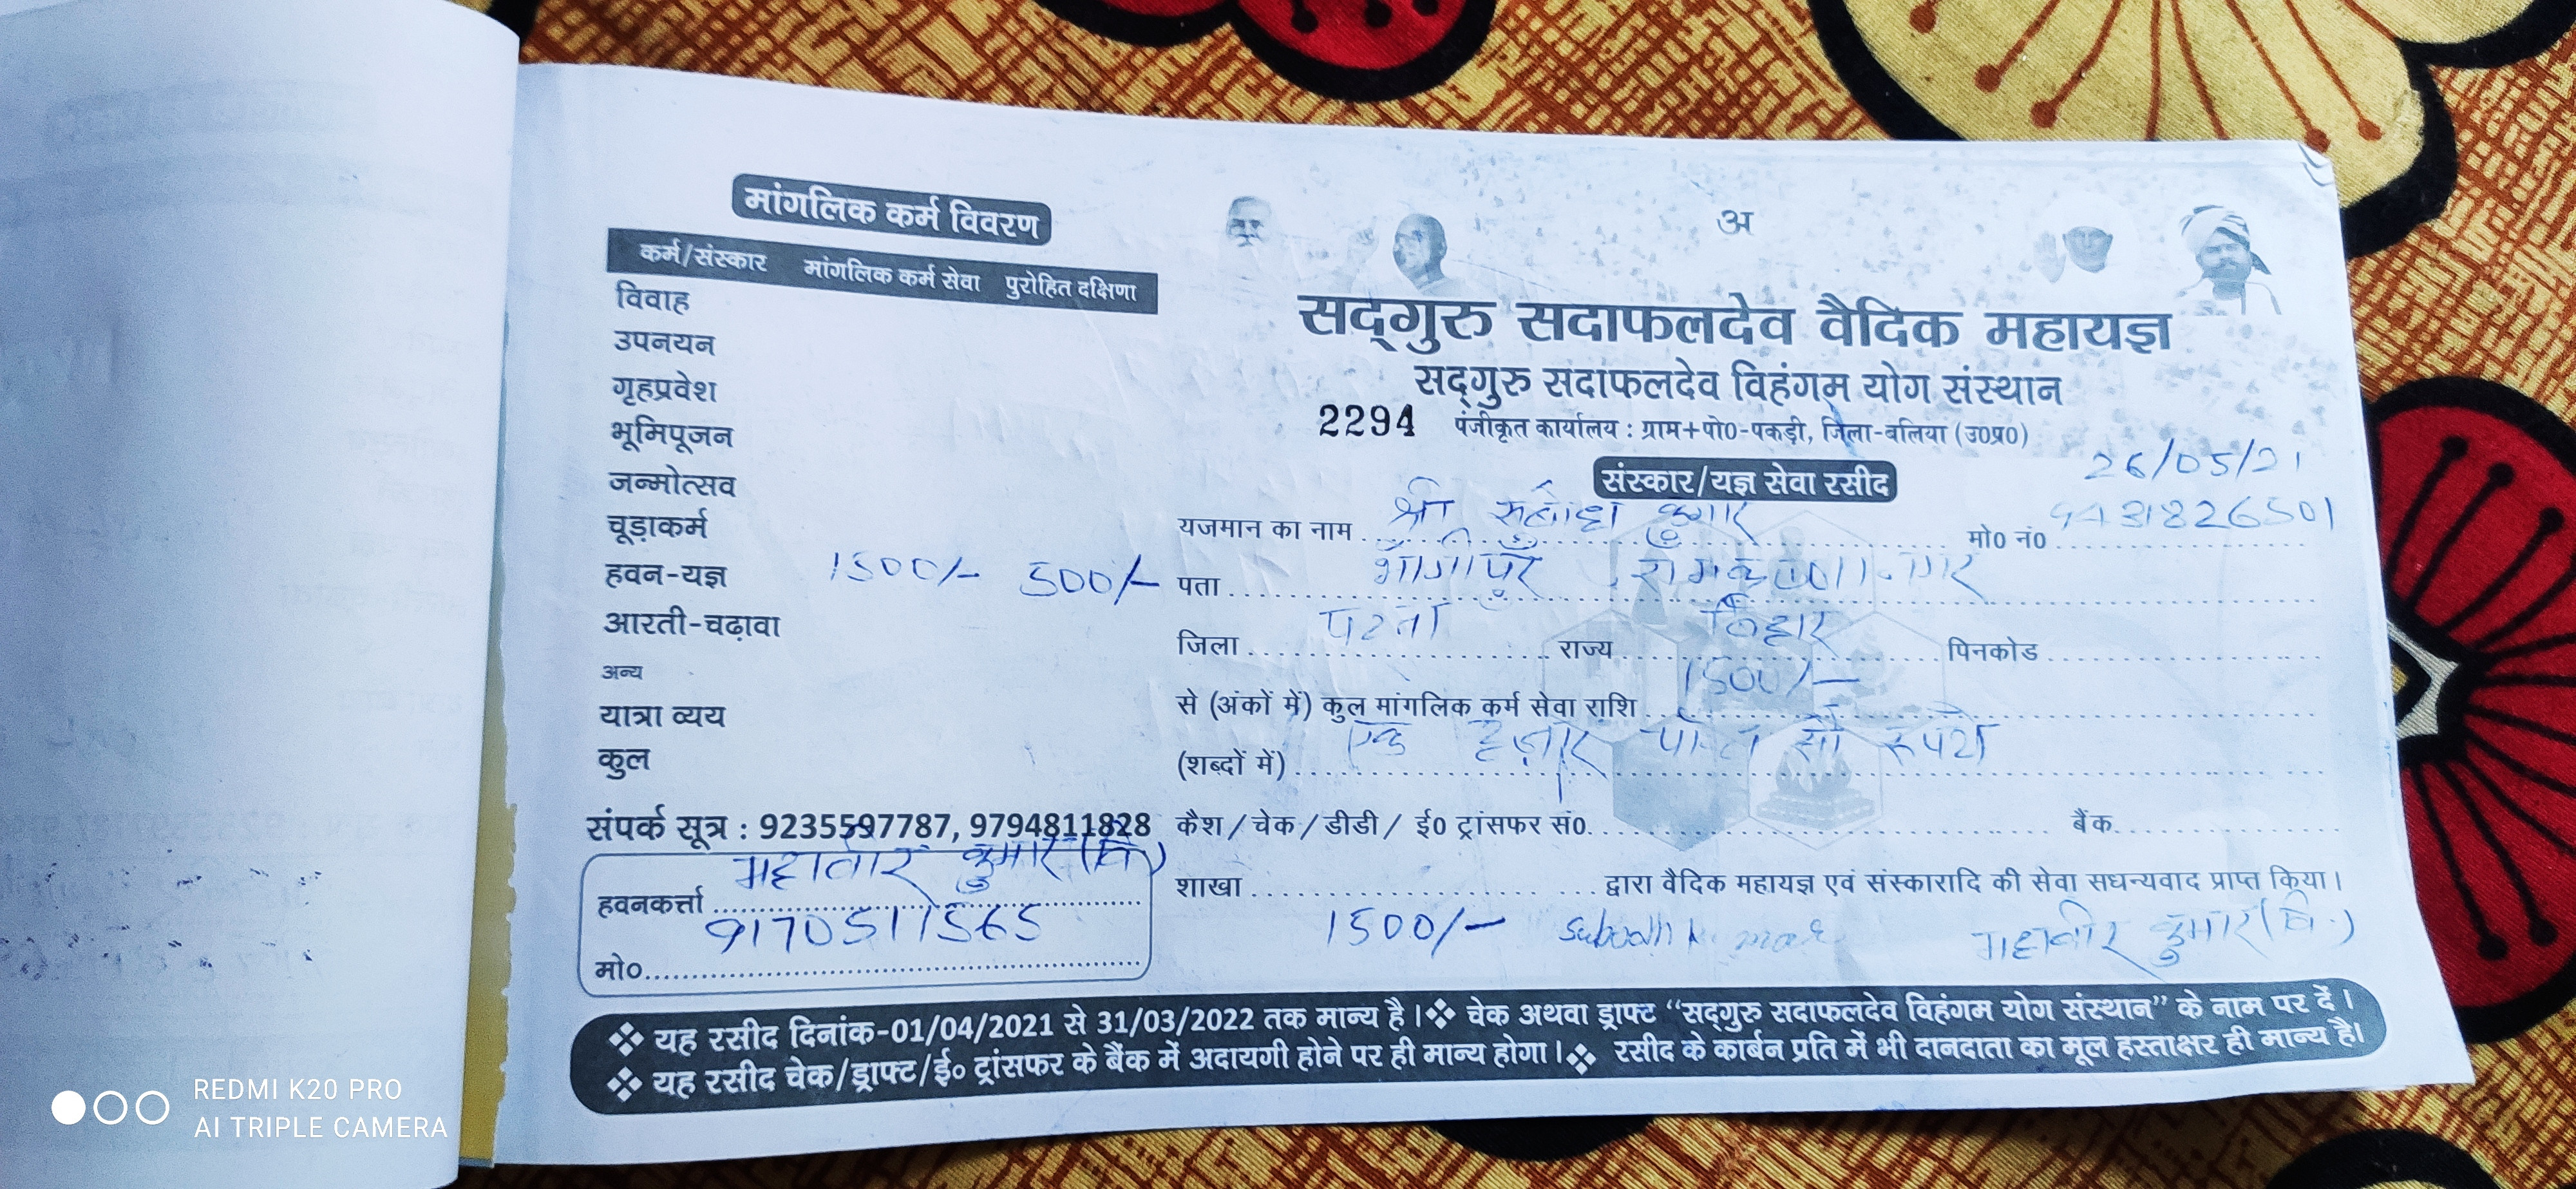 मांगलिक कर्म विवरण
कर्म/संस्कार मांगलिक कर्म सेवा पुरोहित दक्षिणा
विवाह
उपनयन
गृहप्रवेश
भूमिपूजन
जन्मोत्सव
चूड़ाकर्म
हवन-यज्ञ 1500/- 500/-
आरती-चढ़ावा
अन्य
यात्रा व्यय
कुल
संपर्क सूत्र : 9235597787, 9794811828
हवनकर्त्ता महावीर कुमार (वि)
मो० 9170511565
अ
सद्गुरु सदाफलदेव वैदिक महायज्ञ
सद्गुरु सदाफलदेव विहंगम योग संस्थान
2294 पंजीकृत कार्यालय : ग्राम+पो०-पकड़ी, जिला-बलिया (उ०प्र०)
संस्कार/यज्ञ सेवा रसीद 26/05/21
यजमान का नाम श्री सुबोध कुमार मो० नं० 9431826501
पता रामकृष्णा नगर
जिला पटना राज्य बिहार पिनकोड
से (अंकों में) कुल मांगलिक कर्म सेवा राशि 1500/-
(शब्दों में) एक हज़ार पाँच सौ रूपये
कैश/चेक/डीडी/ ई० ट्रांसफर सं०. बैंक
शाखा द्वारा वैदिक महायज्ञ एवं संस्कारादि की सेवा सधन्यवाद प्राप्त किया।
1500/- Subodh Kumar महावीर कुमार (वि.)
❖ यह रसीद दिनांक-01/04/2021 से 31/03/2022 तक मान्य है।❖ चेक अथवा ड्राफ्ट “सद्गुरु सदाफलदेव विहंगम योग संस्थान” के नाम पर दें।
❖ यह रसीद चेक/ड्राफ्ट/ई० ट्रांसफर के बैंक में अदायगी होने पर ही मान्य होगा।❖ रसीद के कार्बन प्रति में भी दानदाता का मूल हस्ताक्षर ही मान्य है।
REDMI K20 PRO
AI TRIPLE CAMERA